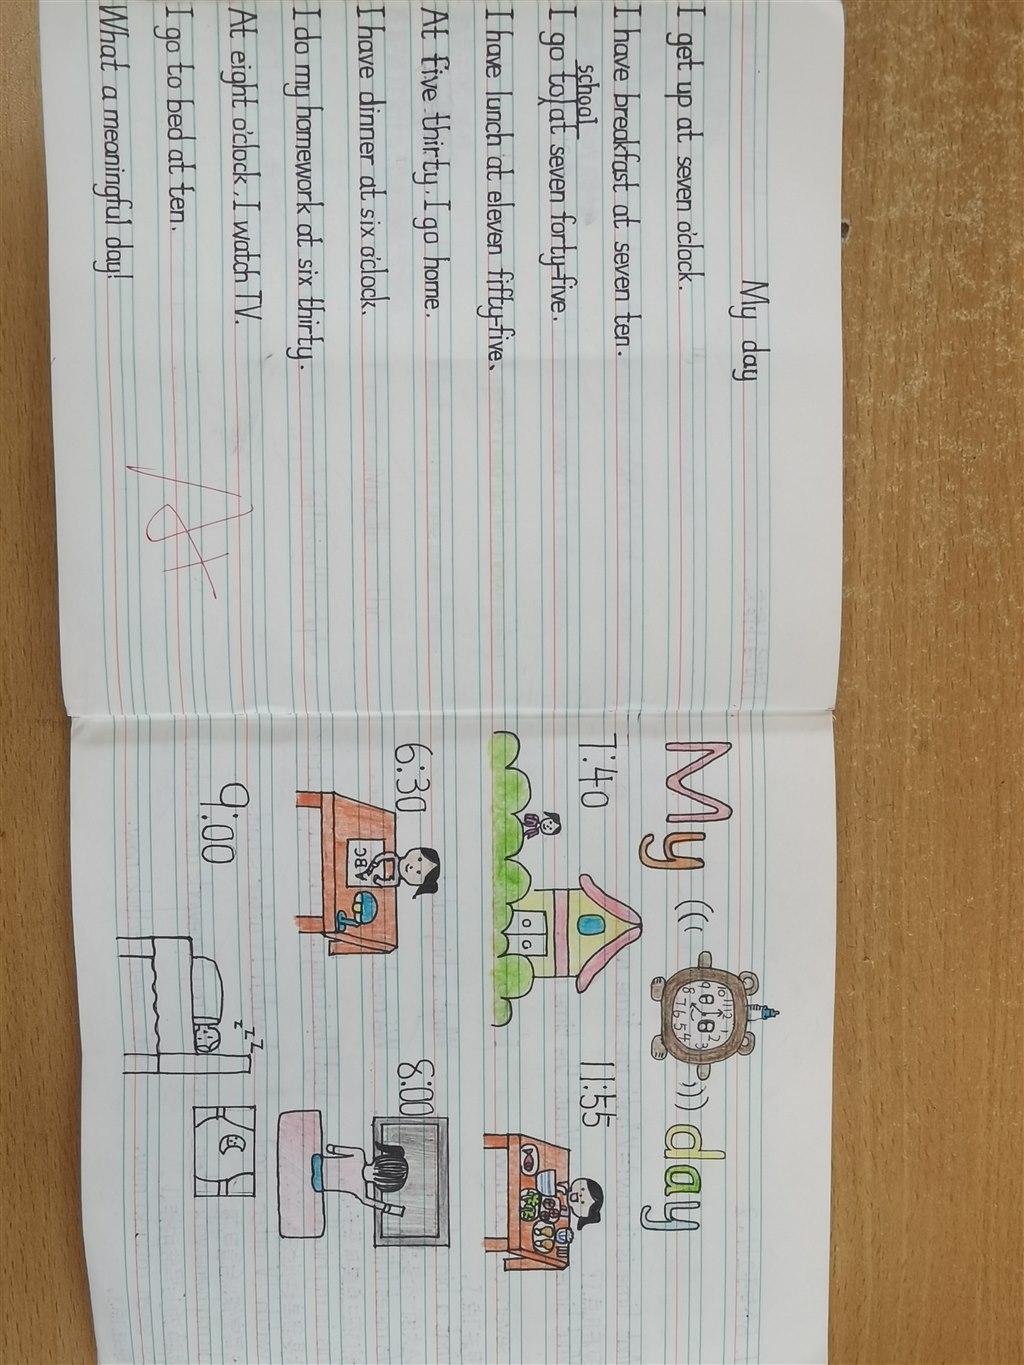 My day
I get up at seven o'clock.
I have breakfast at seven ten.
school
I go to at seven forty-five.
I have lunch at eleven fifty-five.
At five thirty, I go home.
I have dinner at six o'clock.
I do my homework at six thirty.
At eight o'clock, I watch TV.
I go to bed at ten.
What a meoningful day!
A+
My day
7:40
11:55
6:30
ABC
8:00
9:00
zzz